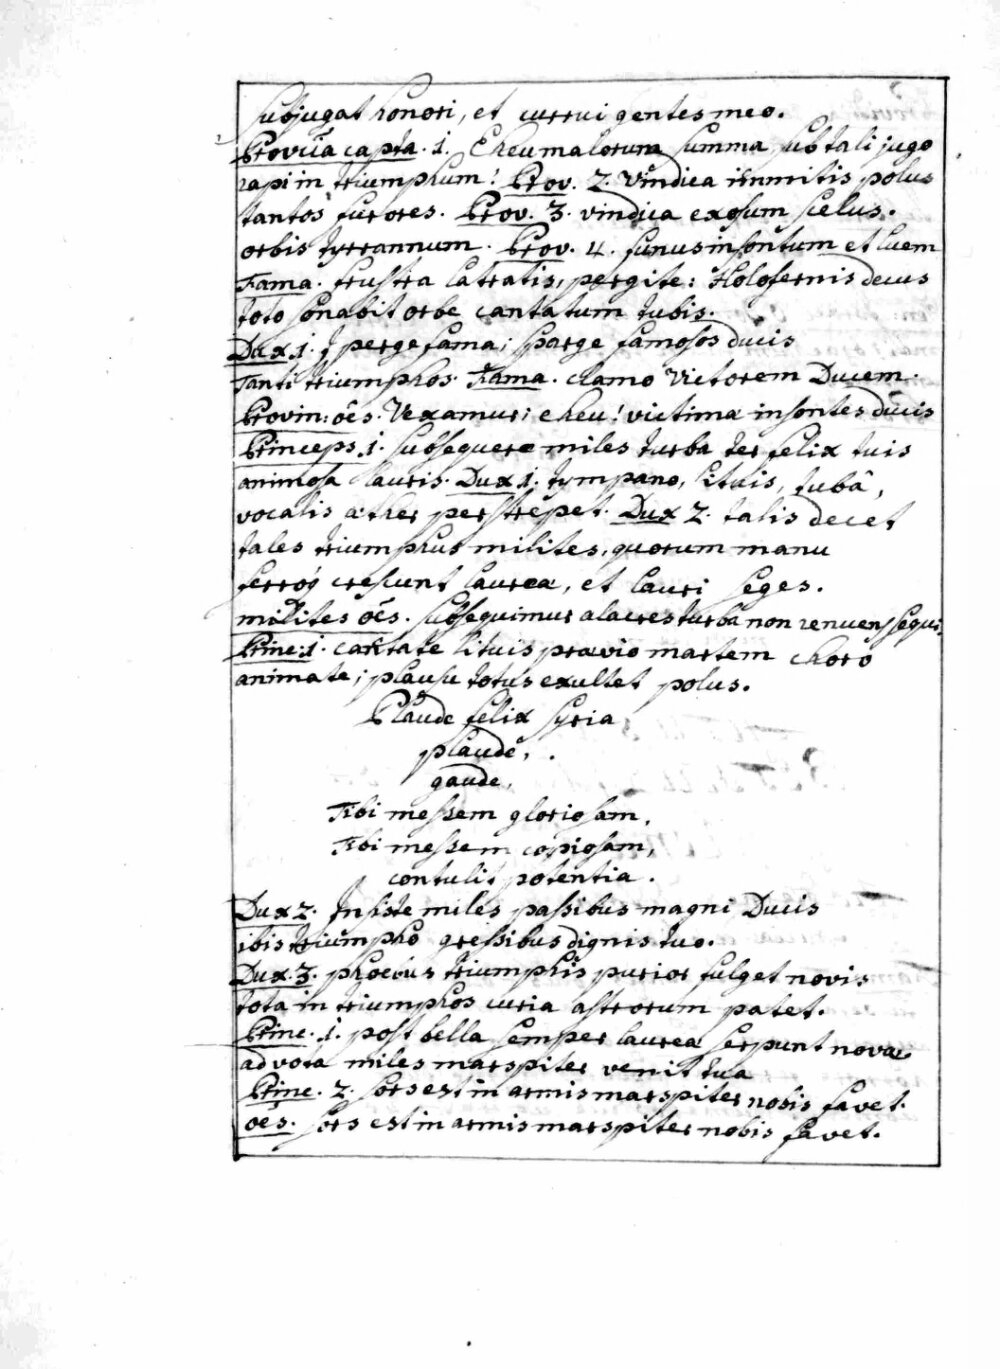 subjugat honori, et currui gentes meo.
Provĩcia capta. 1. Eheu malorum summa, sub tali jugo
rapi in triumphum! Prov. 2. Vindica immitis polus
tantos furores. Prov. 3. vindica exosum scelus.
orbis tyrrannum. Prov. 4. funus insontum et luem
Fama. frustra latratis, pergite: Holofernis decus
toto sonabit orbe cantatum tubis.
Dux 1. perge fama; sparge famosos ducis
Tanti triumphos. Fama. clamo Victorem Ducem.
Provin: oẽs. Vexamur; eheu! victima insontes ducis
Princeps. 1. subsequere miles turba ter felix tuis
animosa lauris. Dux 1. tympano, lituis, tubâ,
vocalis æther perstrepet. Dux 2. talis decet
tales triumphus milites, quorum manu
ferróq crescunt laurea, et lauri seges.
milites oẽs. subsequimur alacres turba non renuens sequi.
Prine: 1. cantate lituis prævio martem choro
animate; plausu totus exultet polus.
Plaude felix Syria
plaude,
gaude,
Tibi messem gloriosam,
Tibi messem copiosam,
contulit potentia.
Dux 2. Insiste miles passibus magni Ducis
ibis triumpho gressibus dignis tuo.
Dux. 3. phoebus triumphis purior fulget novis
tota in triumphos curia astrorum patet.
Prine. 1. post bella semper laurea serpunt novæ
ad vota miles marspiter venit tua
Prine. 2. sors est in armis marspiter nobis favet.
oẽs. sors est in armis marspiter nobis favet.